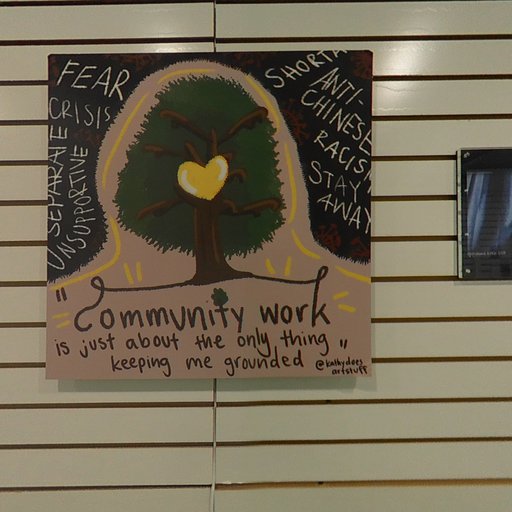 FEAR
CRISIS
SEPARATE
UNSUPPORTIVE
ANTI-
CHINESE
RACISM
STAY
AWAY
"Community work
is just about the only thing
keeping me grounded"
@kathydoes
artstuff